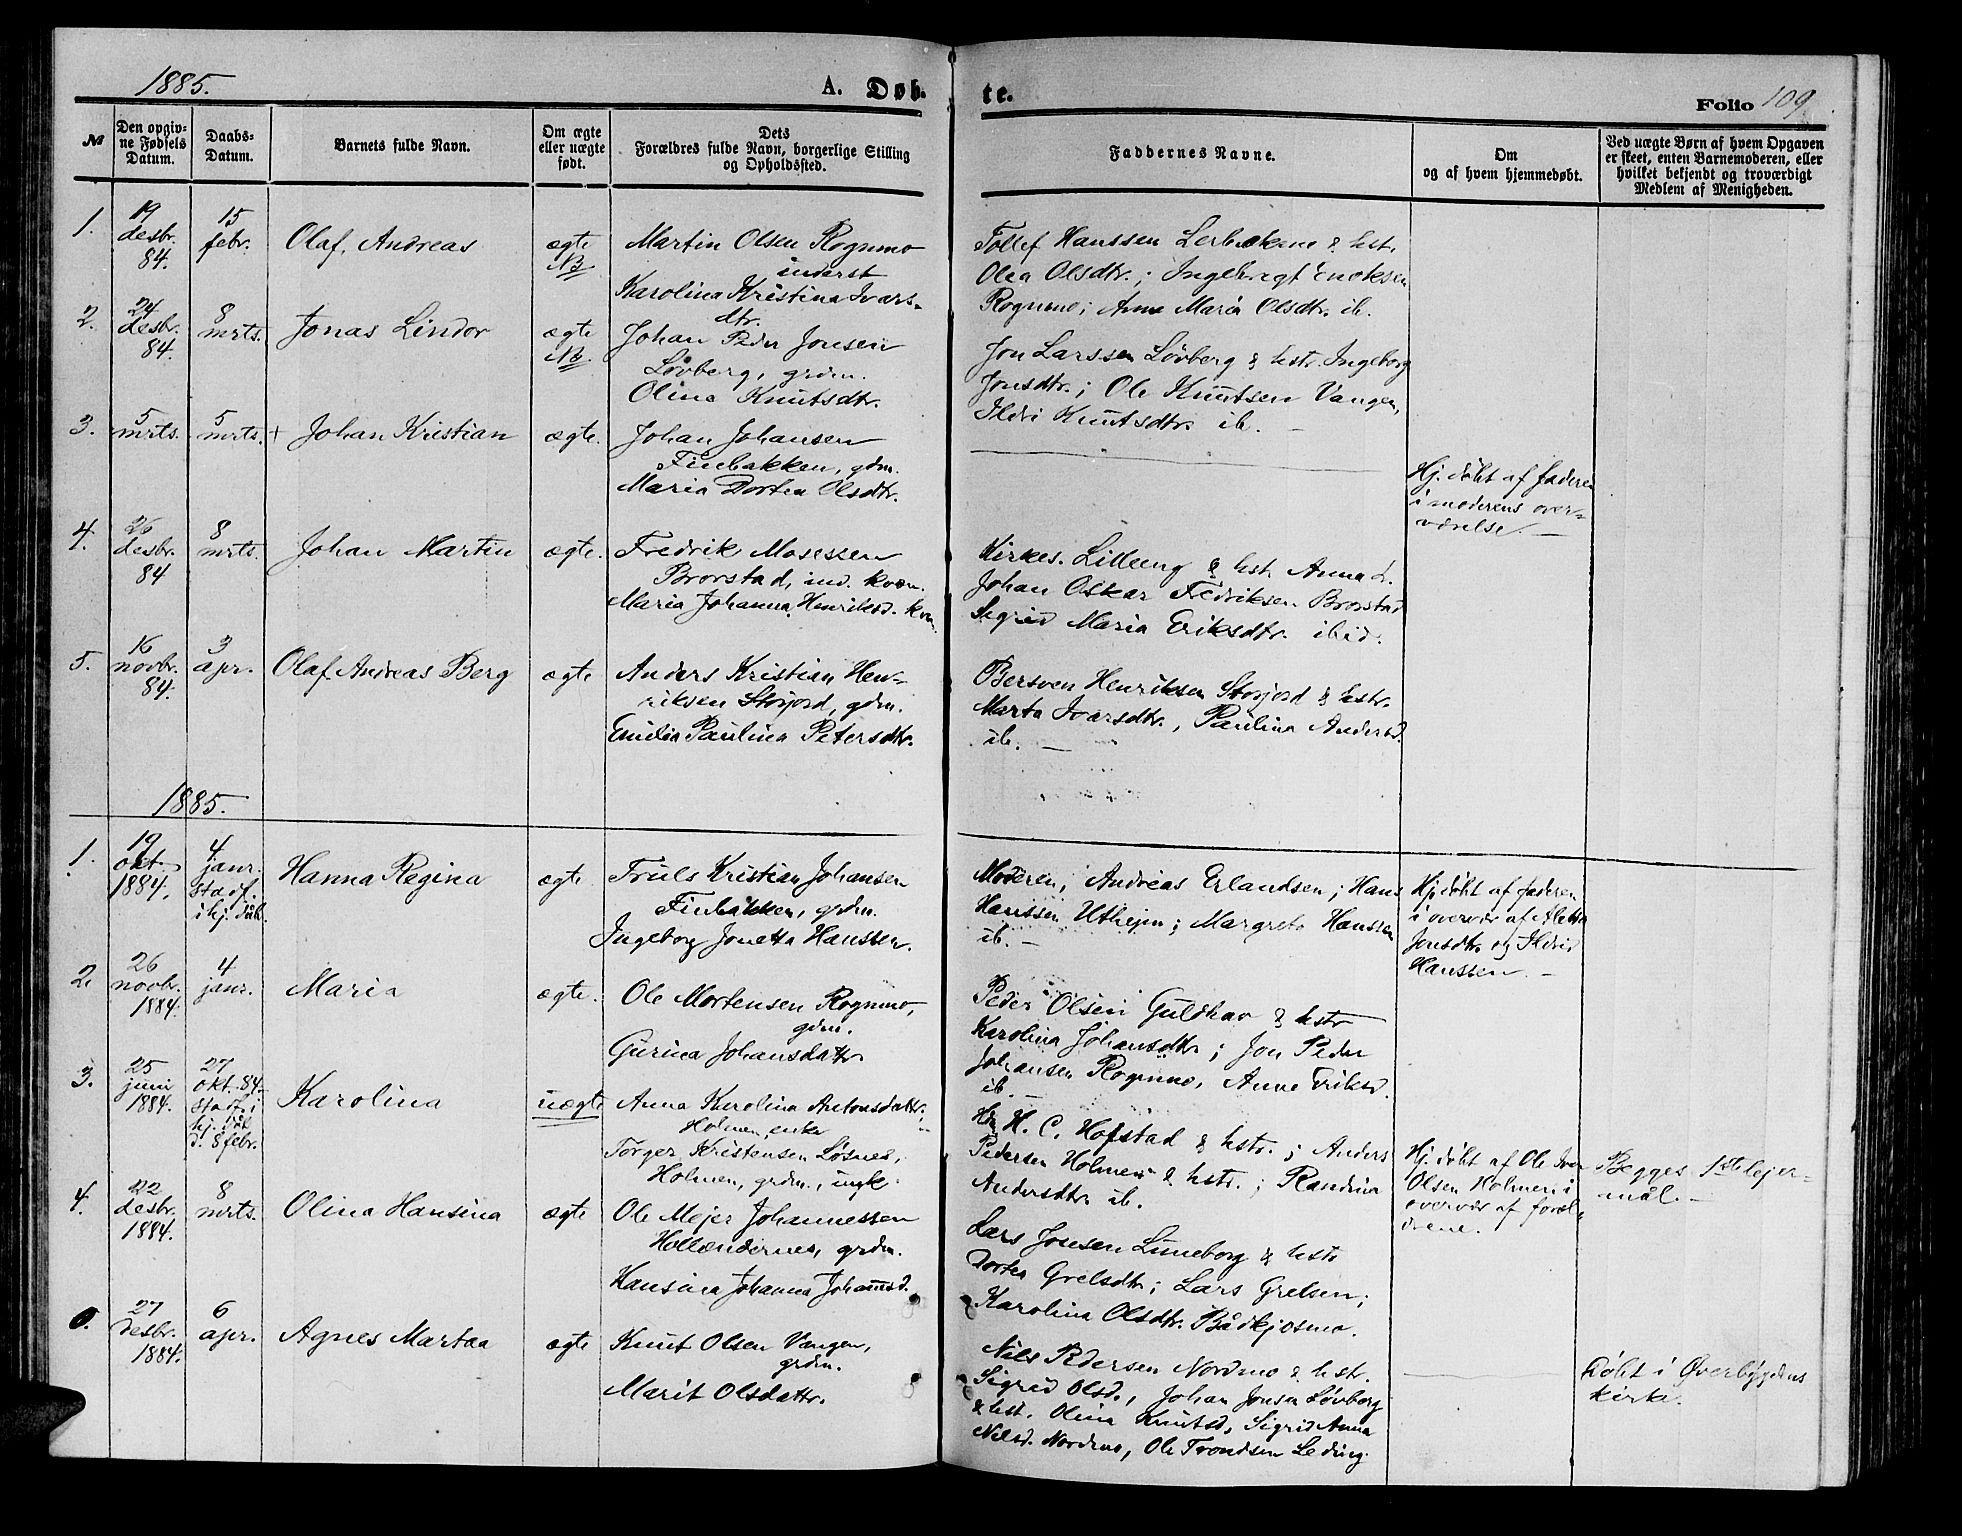 1885.
A. Døb-
te.
Folio 109.
№
Den opgiv-
ne Fødsels
Datum.
Daabs-
Datum.
Barnets fulde Navn.
Om ægte
eller uægte
født.
Dets
Forældres fulde Navn, borgerlige Stilling
og Opholdssted.
Faddernes Navne.
Om
og af hvem hjemmedøbt.
Ved uægte Børn af hvem Opgaven
er skeet, enten Barnemoderen, eller
hvilket bekjendt og troværdigt
Medlem af Menigheden.
1.
19
desbr.
84.
15
febr.
Olaf Andreas
ægte
NB
Martin Olsen Rognmo
inderst
Karolina Kristina Ivars-
dtr.
Tollef Hanssen Lerbekmo & hst.
Olea Olsdtr.; Ingebregt Enoksen
Rognmo; Anne Maria Olsdtr. ib.
2.
24
desbr.
84.
8
mrts.
Jonas Lindor
ægte
NB
Johan Peder Jonsen
Løvberg, grdm.
Olina Knutsdtr.
Jon Larssen Løvberg & hstr. Ingeborg
Jonsdtr.; Ole Knutsen Vangen,
Ildri Knutsdtr. ib. —
3.
5
mrts.
5
mrts.
+ Johan Kristian
ægte.
Johan Johansen
Finbakken, gdm.
Maria Dortea Olsdtr.
Hj. døbt af faderen
i moderens over-
værelse. —
4.
26
desbr.
84
8
mrts.
Johan Martin
ægte.
Fredrik Mosessen
Brorstad, ind. kvæn.
Maria Johanna Henriksd. kvn.
Kirkes. Lilleeng & hst. Anna L.
Johan Oskar Fredriksen Brorstad
Sigrid Maria Eriksdtr. ibid.
5.
16
novbr.
84.
3
apr.
Olaf Andreas Berg
ægte
Anders Kristian Hen-
riksen Storjord, gdm.
Emilia Paulina Petersdtr.
Bersven Henriksen Storjord & hstr.
Marta Ivarsdtr., Paulina Andersd.
ib. —
1885.
1.
19
okt.
1884.
4
janr.
stadf.
i hj. døb.
Hanna Regina
ægte
Truls Kristian Johansen
Finbakken, grdm.
Ingeborg Jonetta Hanssen.
Moderen; Andreas Erlandsen; Hans
Hanssen Uthejm; Margrete Hanssen
ib. —
Hj. døbt af faderen
i overvær af Aletta
Jonsdtr. og Ildrid
Hanssen. —
2.
26
novbr.
1884.
4
janr.
Maria
ægte.
Ole Mortensen Rognmo,
gdm.
Gurina Johansdattr.
Peder Olsen Guldhav & hstr
Karolina Johansdtr.; Jon Peder
Johansen Rognmo, Anne Eriksd.
ib. —
3.
25
juni
1884.
27
okt. 84.
stadf. i
hj. døb
d. 8 febr.
Karolina
uægte
Anna Karolina Antonsdattr.
Holmen, enke
Torger Kristensen Løsnes,
Holmen, grdm., ungk.
Hr. H. C. Hofstad & hstr.; Anders
Pedersen Holmen & hstr.; Randina
Andersdtr. ib.
Hj. døbt af Ole Iver
Olsen Holmen i
overvær af foræl-
drene.
Begges 1ste lejer-
mål. —
4.
22
desbr.
1884.
8
mrts.
Olina Hansina
ægte
Ole Mejer Johannessen
Hollændernes, grdm.
Hansina Johanna Johannsd.
Lars Jonsen Luneborg & hstr
Dortea Grelsdtr; Lars Grelsen;
Karolina Olsdtr. Bådkjosmo.
0.
27
desbr.
1884.
6
apr.
Agnes Martaa
ægte
Knut Olsen Vangen,
grdm.
Marit Olsdattr.
Nils Pedersen Nordmo & hstr.
Sigrid Olsd., Johan Jonsen Løvberg
& hst. Olina Knutsd, Sigrid Anna
Nilsd. Nordmo, Ole Trondsen Leding.
Døbt i Øverbygdens
kirke.